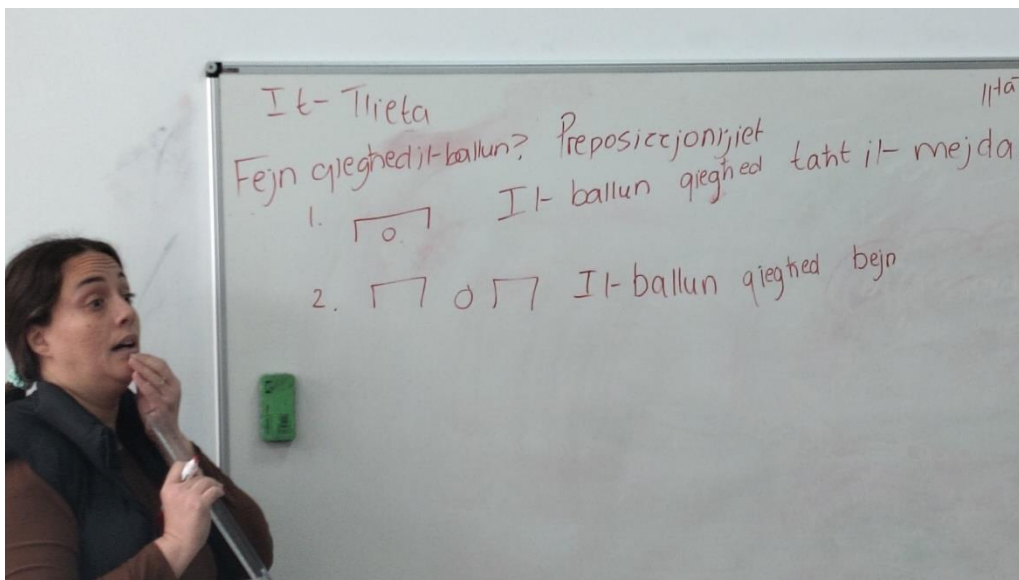 It- Tlieta
Fejn qiegħed il-ballun? Prepożizzjonijiet
1. Il- ballun qiegħed taħt il- mejda
2. Il- ballun qiegħed bejn